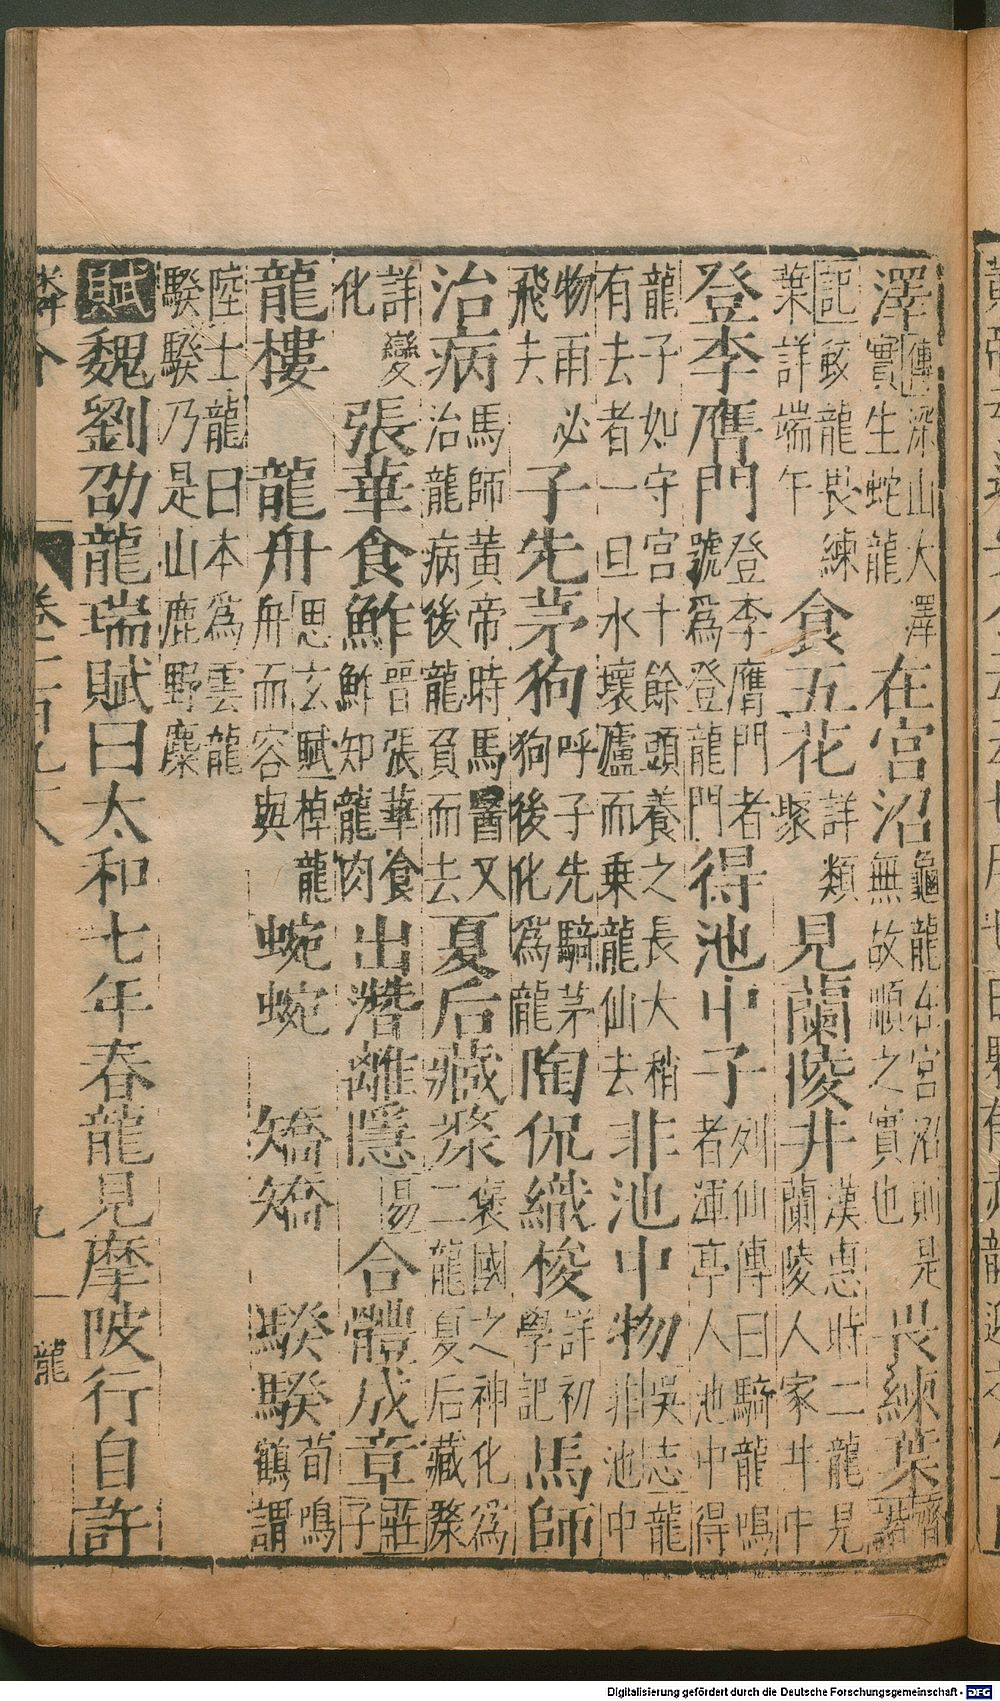 澤傳深山大澤實生蛇龍在宮沼龜龍在宮沼則是無故順之實也畏練葉齊諧
記蛟龍畏練葉詳端午食五花詳類聚見蘭陵井漢惠時二龍見蘭陵人家井中
登李膺門登李膺門者號為登龍門得池中子列仙傳曰騎龍鳴者渾亭人池中得
龍子如守宮十餘頭養之長大稍有去者一旦水壞廬而乗龍仙去非池中物吳志龍非池中
物雨必飛夫子先茅狗呼子先騎茅狗後化為龍陶侃織梭詳初學記馬師
治病馬師黃帝時馬醫又治龍病後龍負而去夏后藏漦褒國之神化為二龍夏后藏漦
詳變化張華食鮓晉張華食鮓知龍肉出潛離隱易合體成章莊子
龍樓 龍舟思玄賦棹龍舟而容與 蜿蜿 矯矯 騤騤荀鳴鶴謂
陸士龍曰本為雲龍騤騤乃是山鹿野麋
賦魏劉劭龍瑞賦曰太和七年春龍見摩陂行自許
九
龍
Digitalisierung gefördert durch die Deutsche Forschungsgemeinschaft - DFG